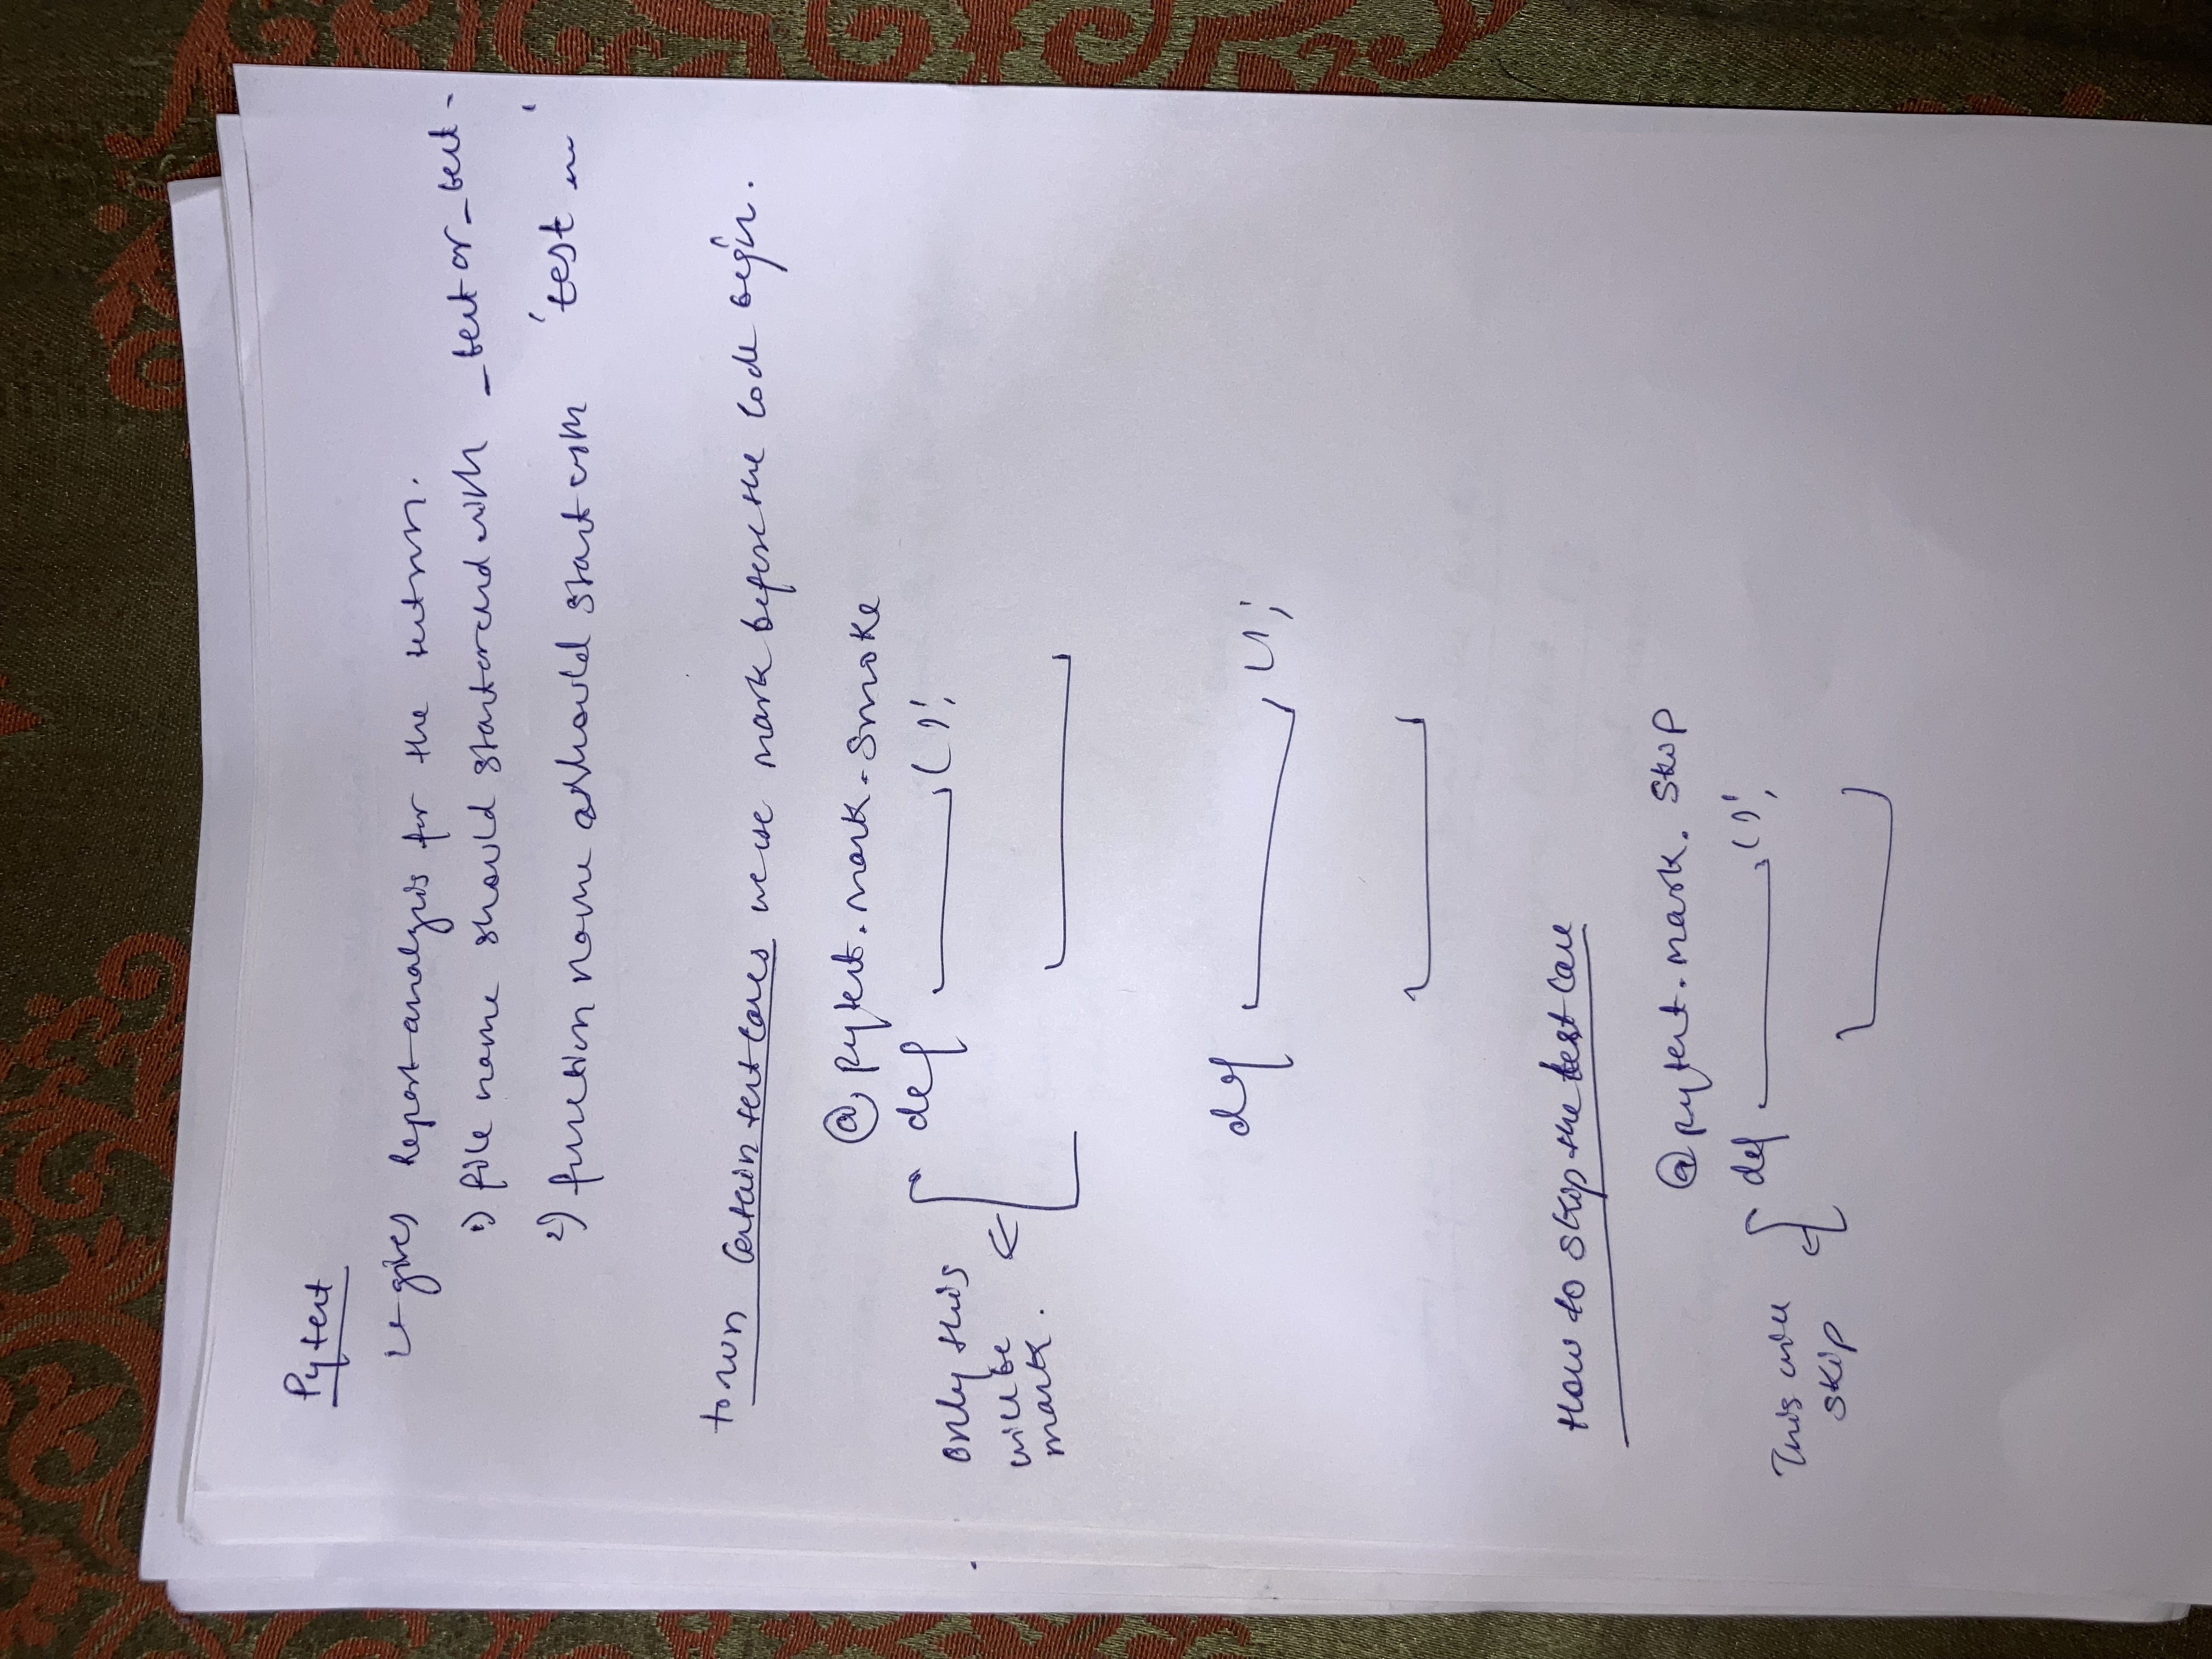 Pytest
↳ gives Report analysis for the test run.
1) file name should start or end with _test or _test.
2) function name should start with 'test _'
to run certain test cases we use mark before the code begin.
@pytest.mark.smoke
def ______():
Only this
will be
mark.
def ______():
How to skip the test case
@pytest.mark.skip
def ______():
This will
skip